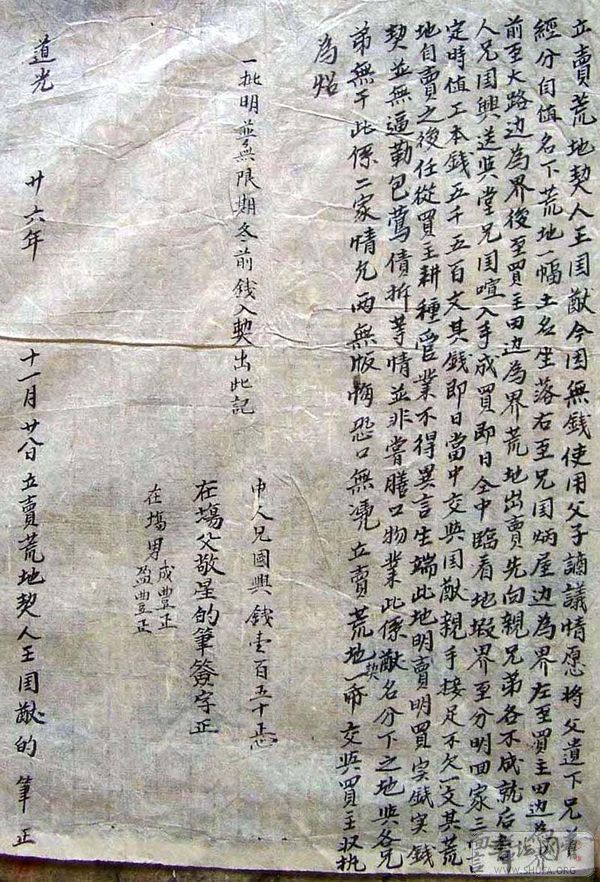 立賣荒地契人王国猷今因無錢使用父子謫議情愿将父遺下兄弟
經分自值名下荒地一幅土名坐落右至兄国炳屋边為界左至買主田边為界
前至大路边為界後至買主田边為界荒地出賣先向親兄弟各不成就后
人兄国興送與堂兄国喧入手成買即日仝中臨看地塅界至分明回家三面言
定時值工本錢五千五百文其錢即日當中交與国猷親手接足不欠一文其荒
地自賣之後任從買主耕種管業不得異言生端此地明賣明買实錢实
契並無逼勒包鶯債折等情並非嘗膳口物業此係猷名分下之地與各兄
弟無干此係二家情允兩無版悔恐口無凴立賣荒地契一帋交與買主収执
為炤
一批明並無限期冬前錢入契出此記
中人兄国興錢壹百五十正
在塲父敬星的筆簽字正
在塲男成豊正
盈豊正
道光廿六年十一月廿八日立賣荒地契人王国猷的筆正
WWW.SHUFA.ORG